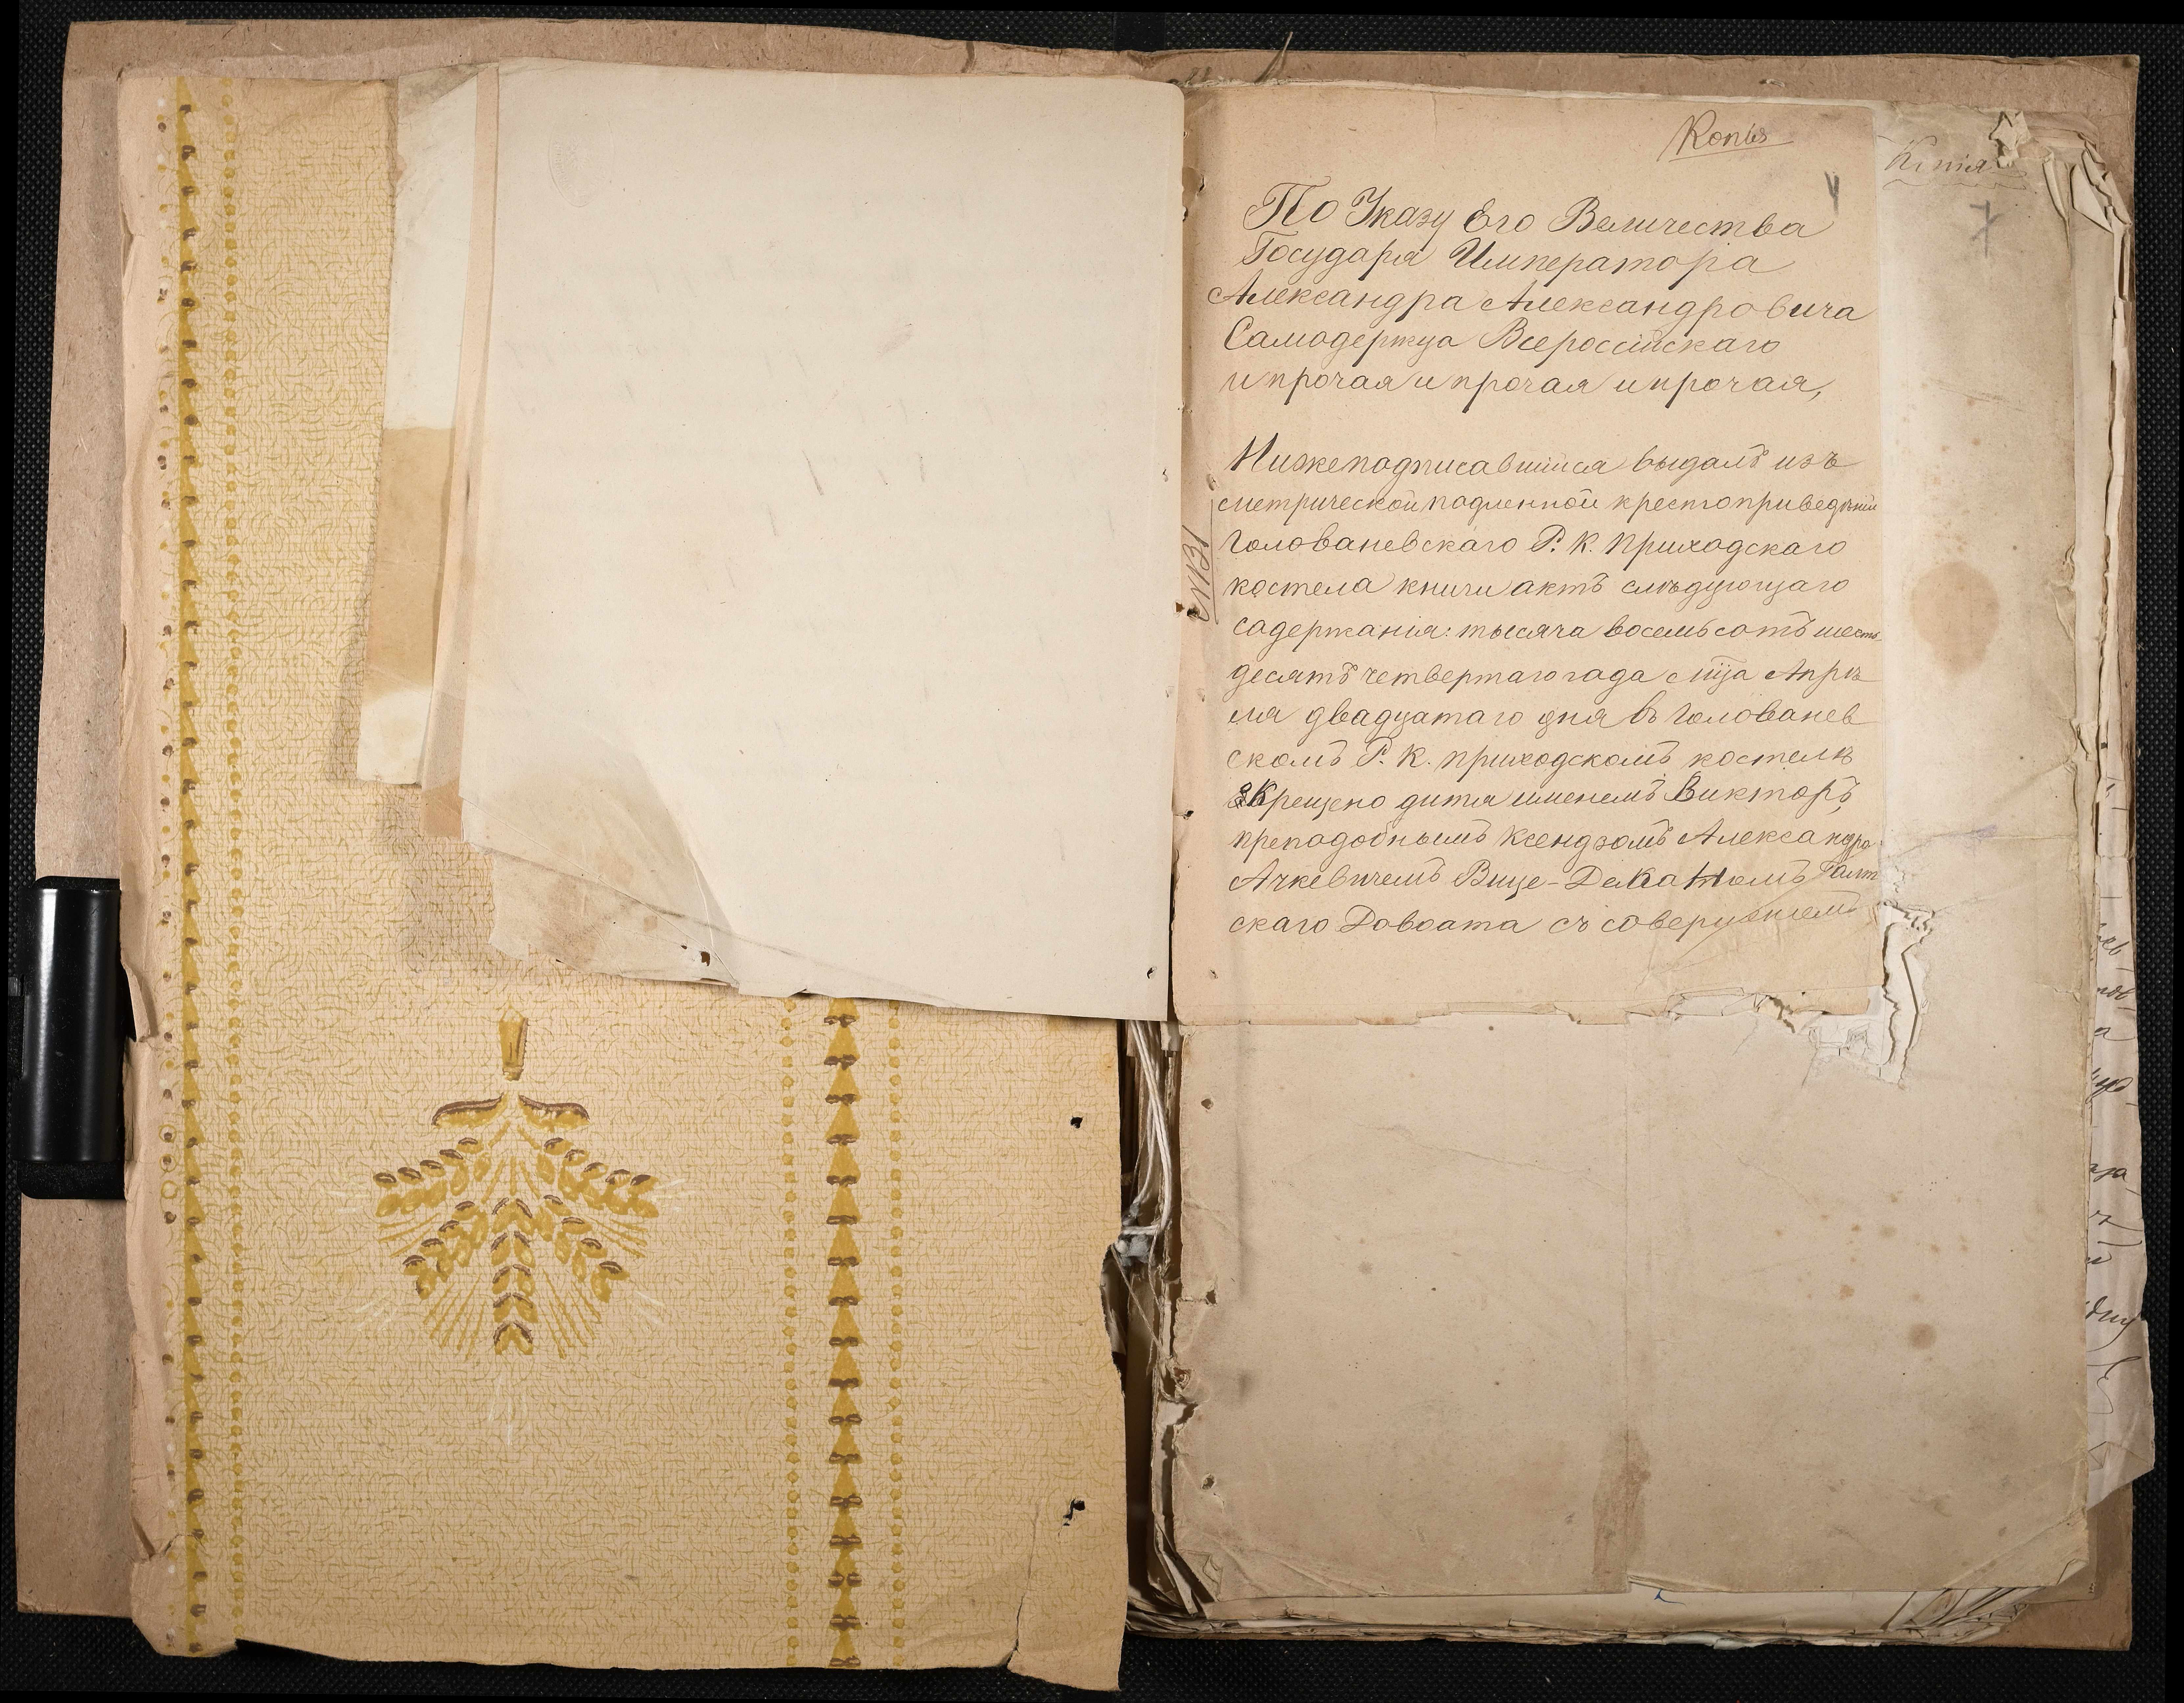 Копія
По Указу Его Величества
Государя Императора
Александра Александровича
Самодержца Всероссійскаго
и прочая и прочая и прочая,
Нижеподписавшійся выдалъ изъ
метрической подленной крестоприведеній
Голованевскаго Р. К. приходскаго
костела книги актъ слѣдующаго
содержанія: тысяча восемьсотъ шесть
десятъ четвертаго года мца Апрѣ
ля двадцатаго дня въ Голованев
скомъ Р. К. приходскомъ костелѣ
Крещено дитя именемъ Викторъ,
преподобнымъ ксендзомъ Александро
Ачкевичемъ Вице-Деканомъ Галт
скаго съ совершеніемъ
№131
Копія
7